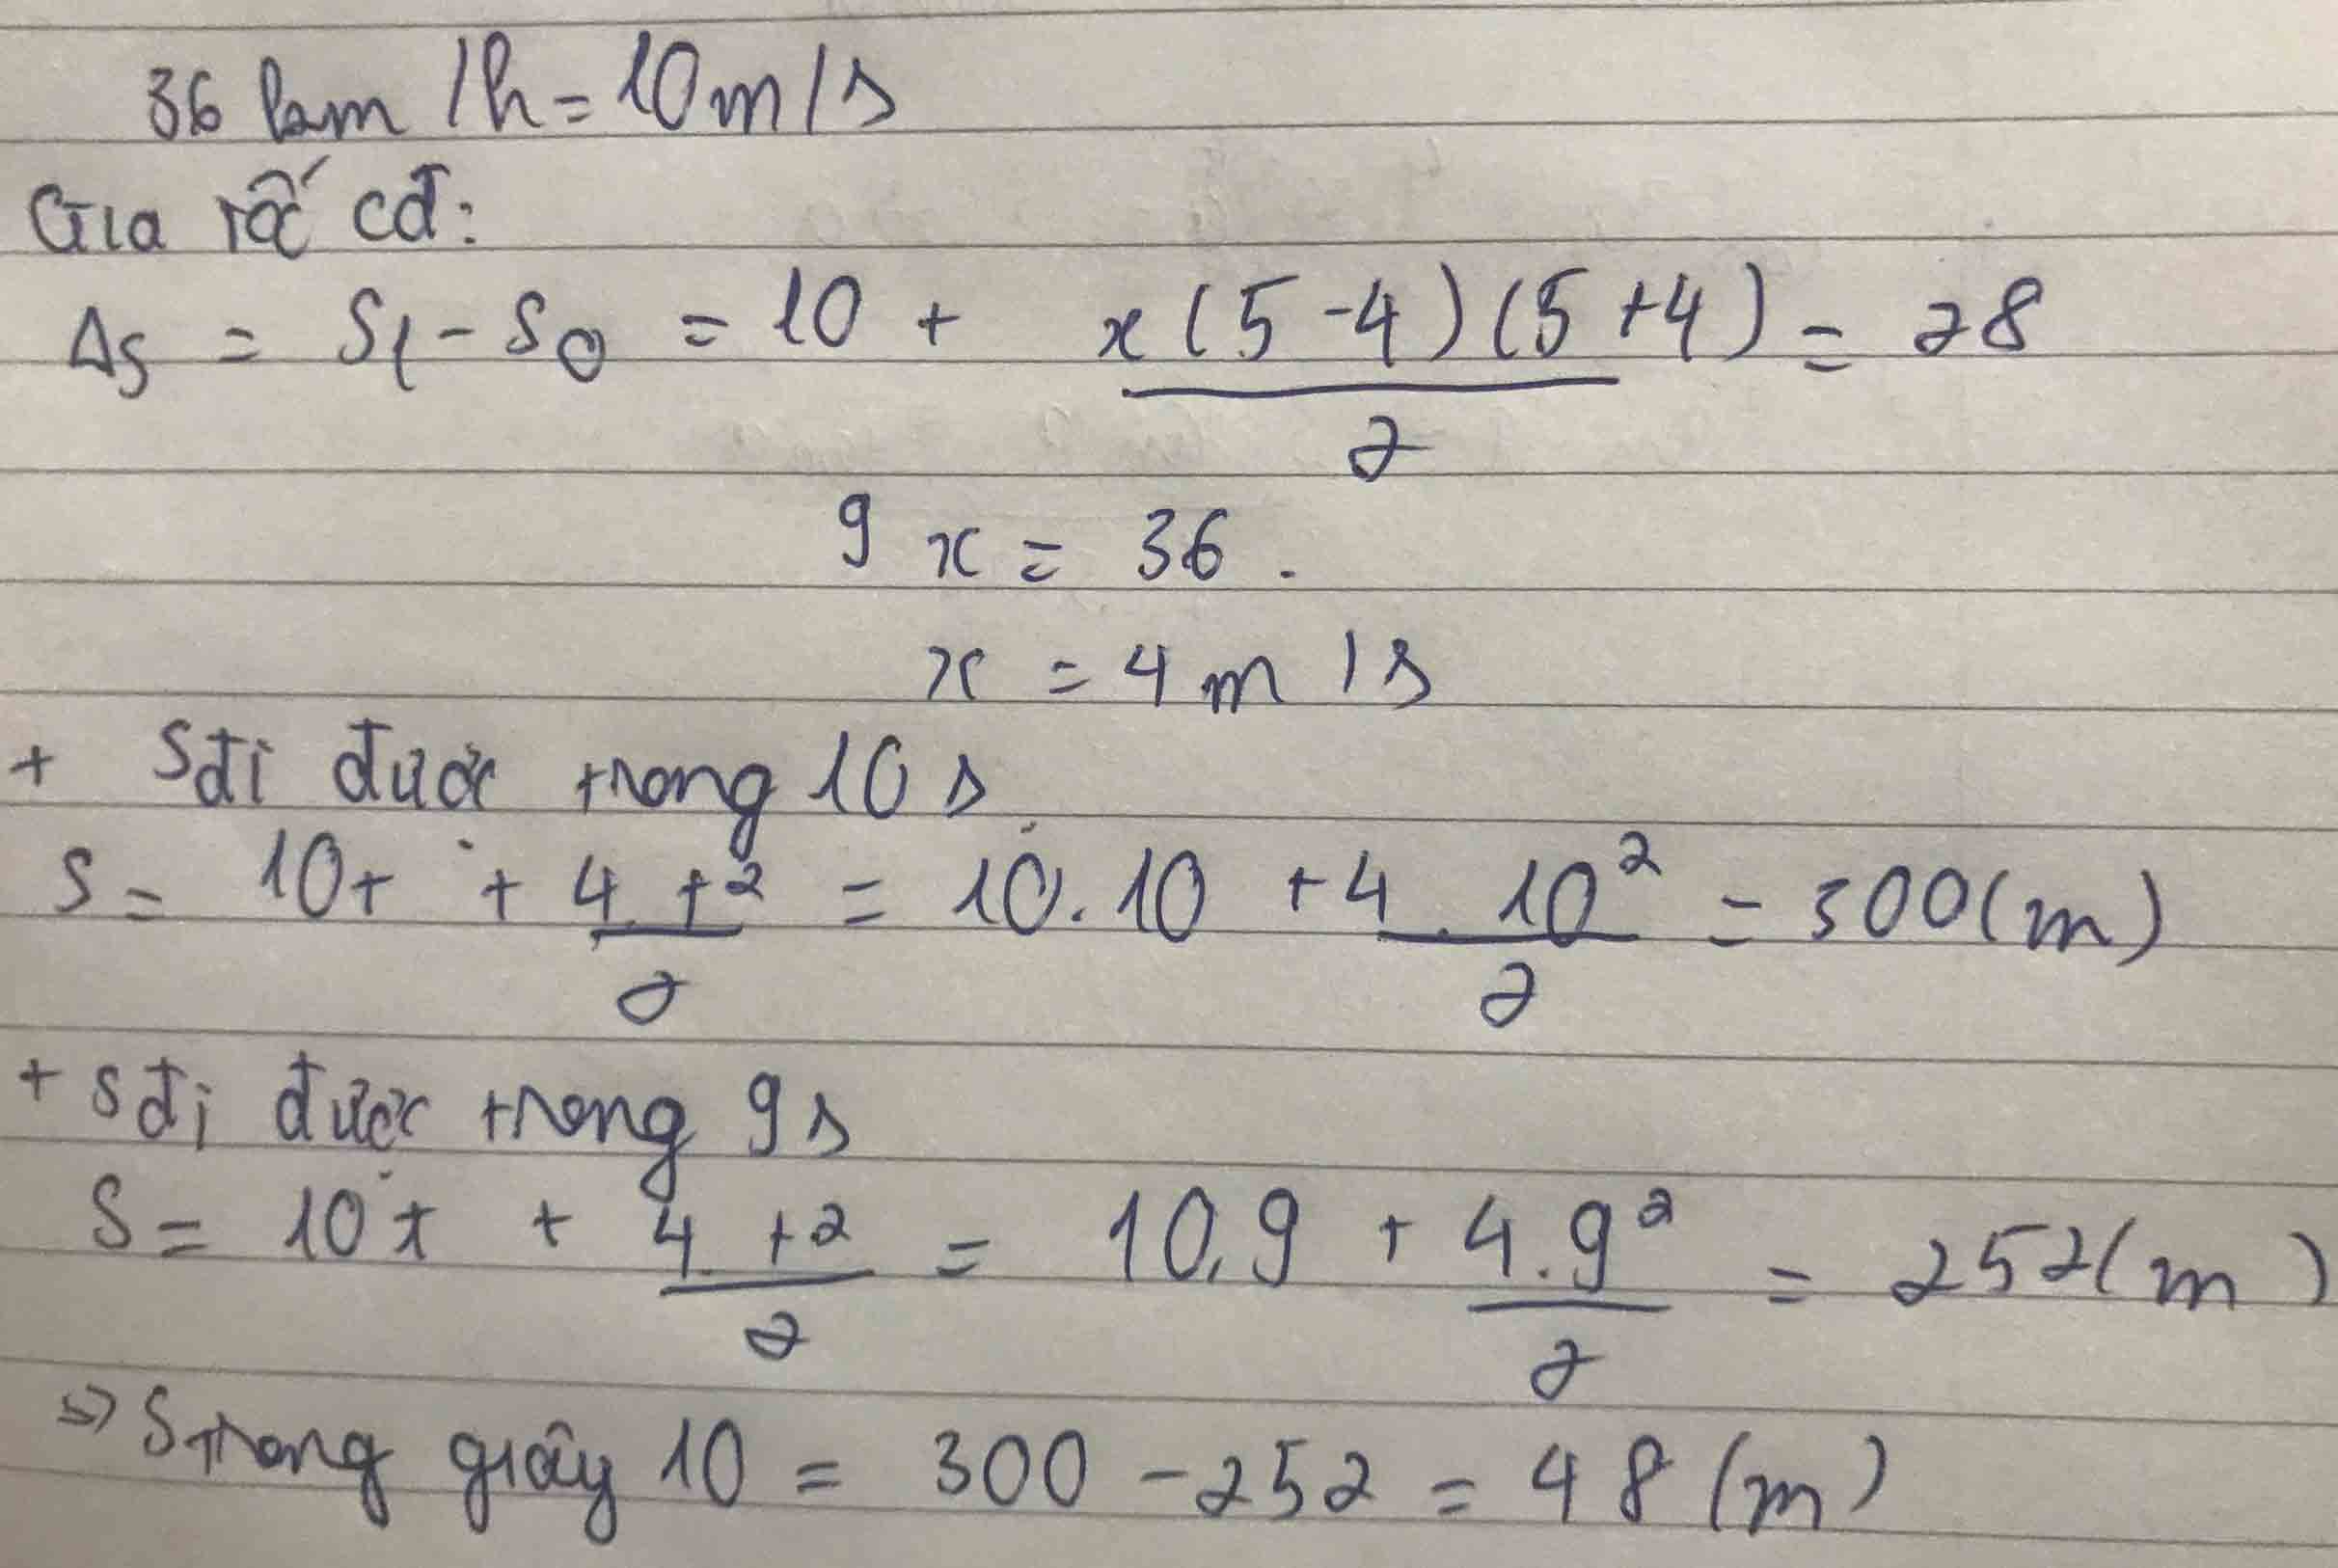 36 km/h = 10m/s
Gia tốc cđ:
Δs = S₁ - S₀ = 10 + x(5-4)(5+4)/2 = 28
9x = 36.
x = 4 m/s
+ S đi được trong 10s
S = 10t + 4.t²/2 = 10.10 + 4.10²/2 = 300(m)
+ S đi được trong 9s
S = 10t + 4.t²/2 = 10.9 + 4.9²/2 = 252(m)
=> S trong giây 10 = 300 - 252 = 48 (m)